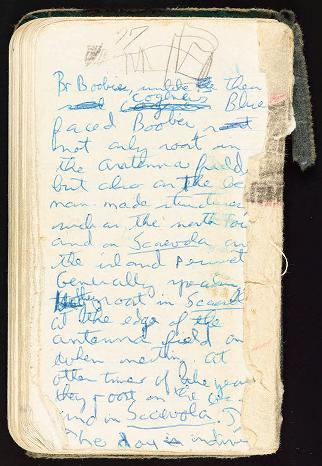 27
Br Boobies, unlike the then
cogeners Blue
faced Boobies,
not only roost in
the antenna field
but also on the
man-made structures
such as the north
and on Scaevola
the island
Generally speaking
they roost in
at the edge of the
antenna field
when nesting. At
other times of the year
they roost on the
and in Scaevola.
The day